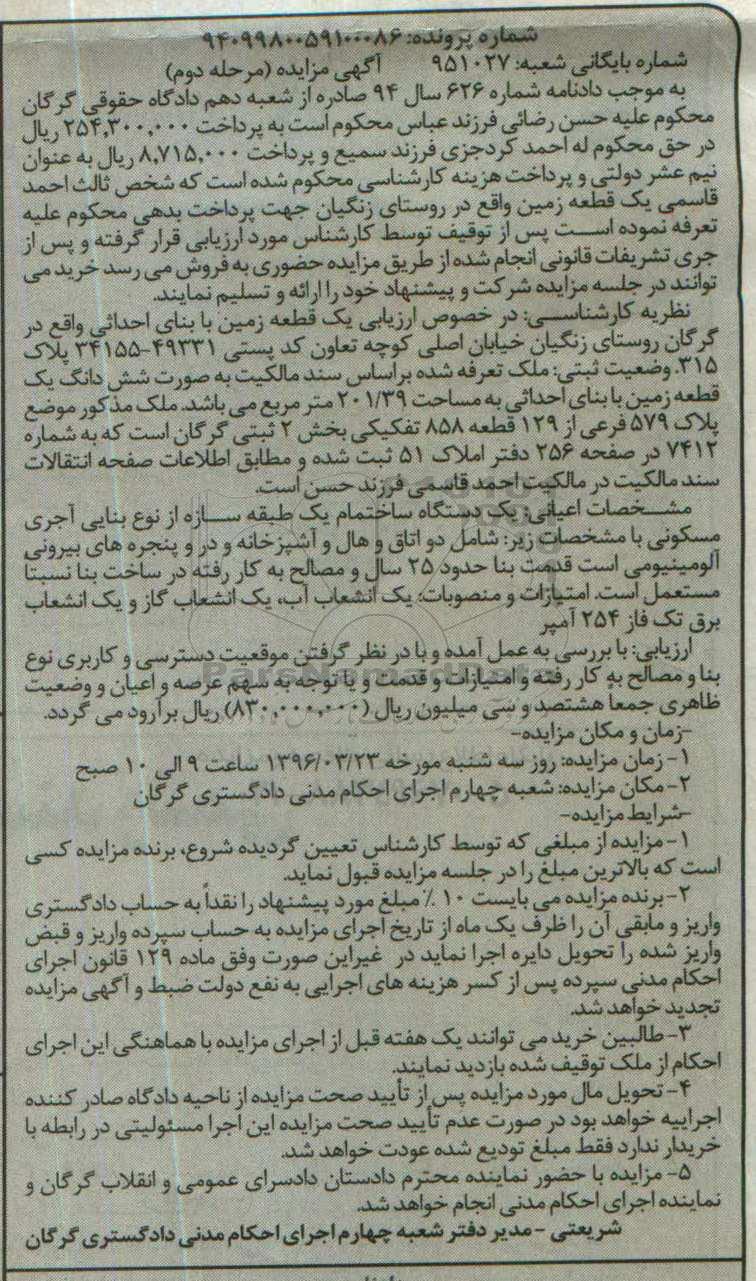 شماره پرونده: ۹۴۰۹۹۸۰۰۵۹۱۰۰۰۸۶
شماره بایگانی شعبه: ۹۵۱۰۲۷ آگهی مزایده (مرحله دوم)
به موجب دادنامه شماره ۶۲۶ سال ۹۴ صادره از شعبه دهم دادگاه حقوقی گرگان
محکوم علیه حسن رضائی فرزند عباس محکوم است به پرداخت ۲۵۴,۳۰۰,۰۰۰ ریال
در حق محکوم له احمد کردجزی فرزند سمیع و پرداخت ۸,۷۱۵,۰۰۰ ریال به عنوان
نیم عشر دولتی و پرداخت هزینه کارشناسی محکوم شده است که شخص ثالث احمد
قاسمی یک قطعه زمین واقع در روستای زنگیان جهت پرداخت بدهی محکوم علیه
تعرفه نموده است پس از توقیف توسط کارشناس مورد ارزیابی قرار گرفته و پس از
جری تشریفات قانونی انجام شده از طریق مزایده حضوری به فروش می رسد خرید می
توانند در جلسه مزایده شرکت و پیشنهاد خود را ارائه و تسلیم نمایند.
نظریه کارشناسی: در خصوص ارزیابی یک قطعه زمین با بنای احداثی واقع در
گرگان روستای زنگیان خیابان اصلی کوچه تعاون کد پستی ۴۹۳۳۱-۳۴۱۵۵ پلاک
۳۱۵. وضعیت ثبتی: ملک تعرفه شده براساس سند مالکیت به صورت شش دانگ یک
قطعه زمین با بنای احداثی به مساحت ۲۰۱/۳۹ متر مربع می باشد. ملک مذکور موضع
پلاک ۵۷۹ فرعی از ۱۲۹ قطعه ۸۵۸ تفکیکی بخش ۲ ثبتی گرگان است که به شماره
۷۴۱۲ در صفحه ۲۵۶ دفتر املاک ۵۱ ثبت شده و مطابق اطلاعات صفحه انتقالات
سند مالکیت در مالکیت احمد قاسمی فرزند حسن است.
مشخصات اعیانی: یک دستگاه ساختمام یک طبقه سازه از نوع بنایی آجری
مسکونی با مشخصات زیر: شامل دو اتاق و هال و آشپزخانه و در و پنجره های بیرونی
آلومینیومی است قدمت بنا حدود ۲۵ سال و مصالح به کار رفته در ساخت بنا نسبتا
مستعمل است. امتیازات و منصوبات: یک انشعاب آب، یک انشعاب گاز و یک انشعاب
برق تک فاز ۲۵۴ آمپر
ارزیابی: با بررسی به عمل آمده و با در نظر گرفتن موقعیت دسترسی و کاربری نوع
بنا و مصالح به کار رفته و امتیازات و قدمت و با توجه به سهم عرصه و اعیان و وضعیت
ظاهری جمعا هشتصد و سی میلیون ریال (۸۳۰,۰۰۰,۰۰۰) ریال برآورد می گردد.
-زمان و مکان مزایده-
۱- زمان مزایده: روز سه شنبه مورخه ۱۳۹۶/۰۳/۲۳ ساعت ۹ الی ۱۰ صبح
۲- مکان مزایده: شعبه چهارم اجرای احکام مدنی دادگستری گرگان
-شرایط مزایده-
۱- مزایده از مبلغی که توسط کارشناس تعیین گردیده شروع، برنده مزایده کسی
است که بالاترین مبلغ را در جلسه مزایده قبول نماید.
۲- برنده مزایده می بایست ۱۰٪ مبلغ مورد پیشنهاد را نقداً به حساب دادگستری
واریز و مابقی آن را ظرف یک ماه از تاریخ اجرای مزایده به حساب سپرده واریز و قبض
واریز شده را تحویل دایره اجرا نماید در غیراین صورت وفق ماده ۱۲۹ قانون اجرای
احکام مدنی سپرده پس از کسر هزینه های اجرایی به نفع دولت ضبط و آگهی مزایده
تجدید خواهد شد.
۳- طالبین خرید می توانند یک هفته قبل از اجرای مزایده با هماهنگی این اجرای
احکام از ملک توقیف شده بازدید نمایند.
۴- تحویل مال مورد مزایده پس از تأیید صحت مزایده از ناحیه دادگاه صادر کننده
اجراییه خواهد بود در صورت عدم تأیید صحت مزایده این اجرا مسئولیتی در رابطه با
خریدار ندارد فقط مبلغ تودیع شده عودت خواهد شد.
۵- مزایده با حضور نماینده محترم دادستان دادسرای عمومی و انقلاب گرگان و
نماینده اجرای احکام مدنی انجام خواهد شد.
شریعتی - مدیر دفتر شعبه چهارم اجرای احکام مدنی دادگستری گرگان